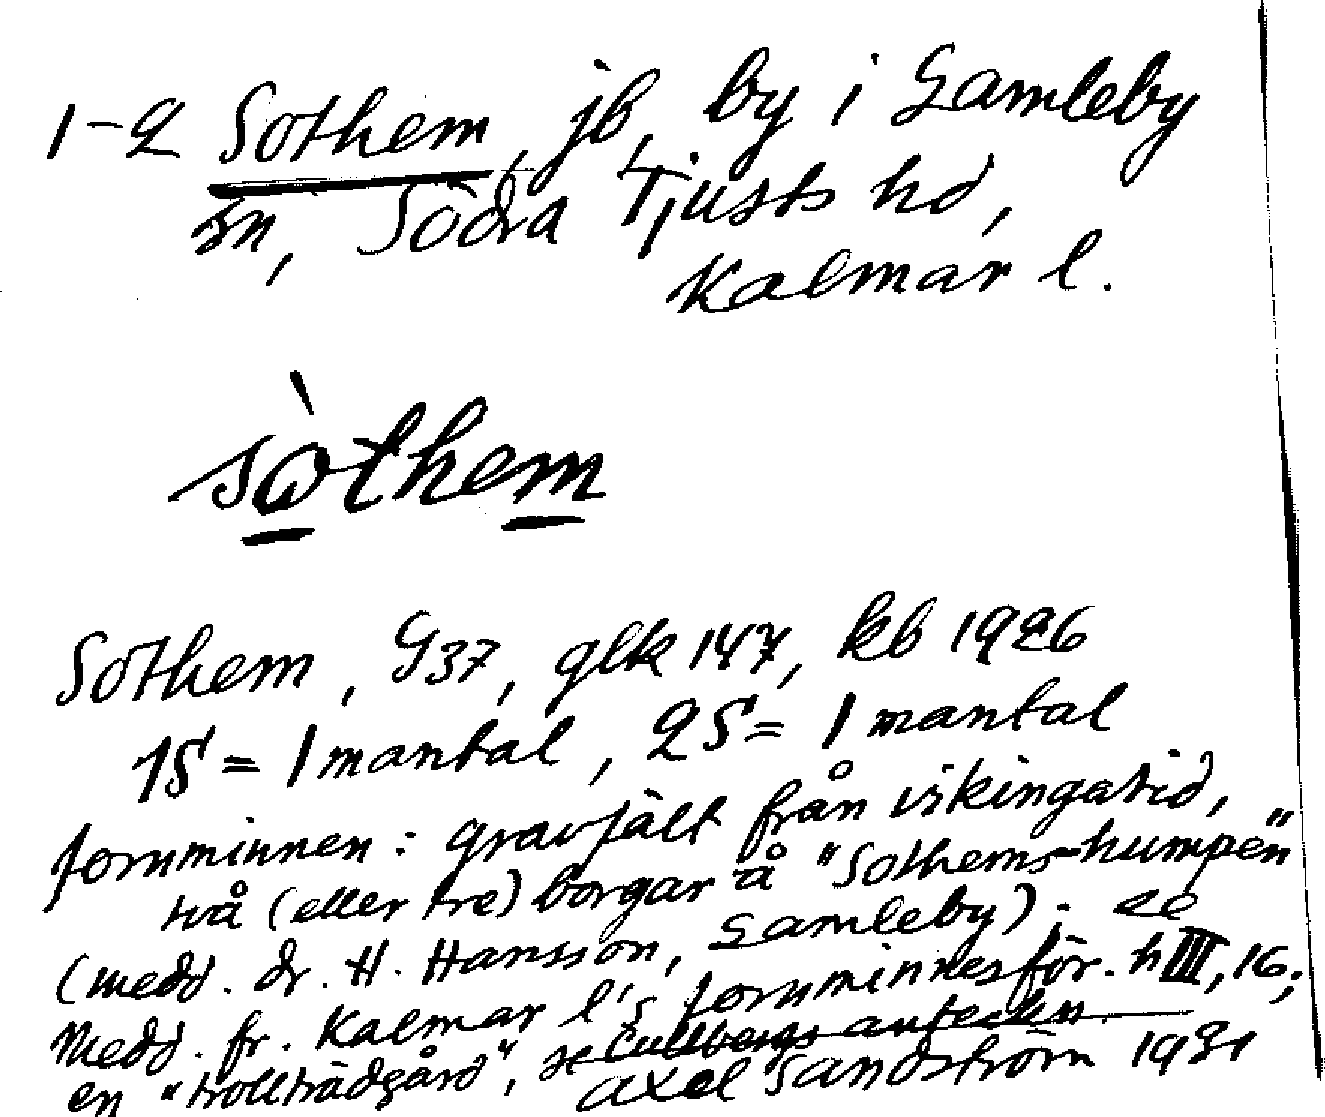 1-2 Sothem, jb, by i Gamleby
sn, Södra Tjusts hd,
Kalmar l.
sòthem
Sothem, G37, glk 147, kb 1926
1S = 1 mantal, 2S = 1 mantal
fornminnen: gravfält från vikingatid,
två (eller tre) borgar å "Sothems-humpen"
(medd. dr. H. Hansson, Gamleby); se
Medd. fr. Kalmar l's fornminnesför. h III, 16;
en "trollträdgård", se Cullbergs anteckn.
Axel Sandström 1931